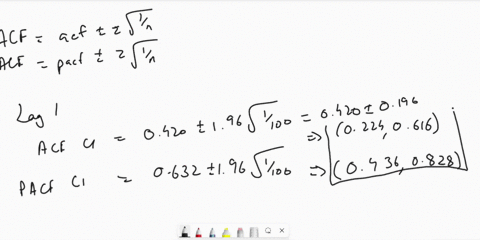 ACF = acf ± z √1/n
ACF = pacf ± z √1/n
Lag 1
ACF CI = 0.420 ± 1.96 √1/100 = 0.420 ± 0.196
⇒ (0.224, 0.616)
PACF CI = 0.632 ± 1.96 √1/100 ⇒ (0.436, 0.828)